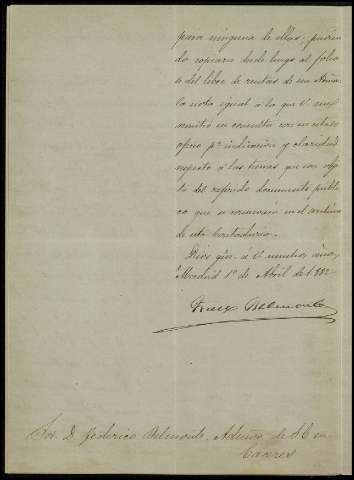 para ninguna de ellas, pudien
do copiarse desde luego al folio
del libro de rentas de esa
la nota igual a la que V. me
remitió en consulta con
pr. indicacion y claridad
respecto á las tierras que son
to del referido documento publi
co que se conserva en el archivo
de esta Contaduria.
Dios gue. a V. muchos años,
Madrid 1º de Abril de
Belmonte
Sor. D. Federico Belmonte, Admor. de S.E. en
Caceres